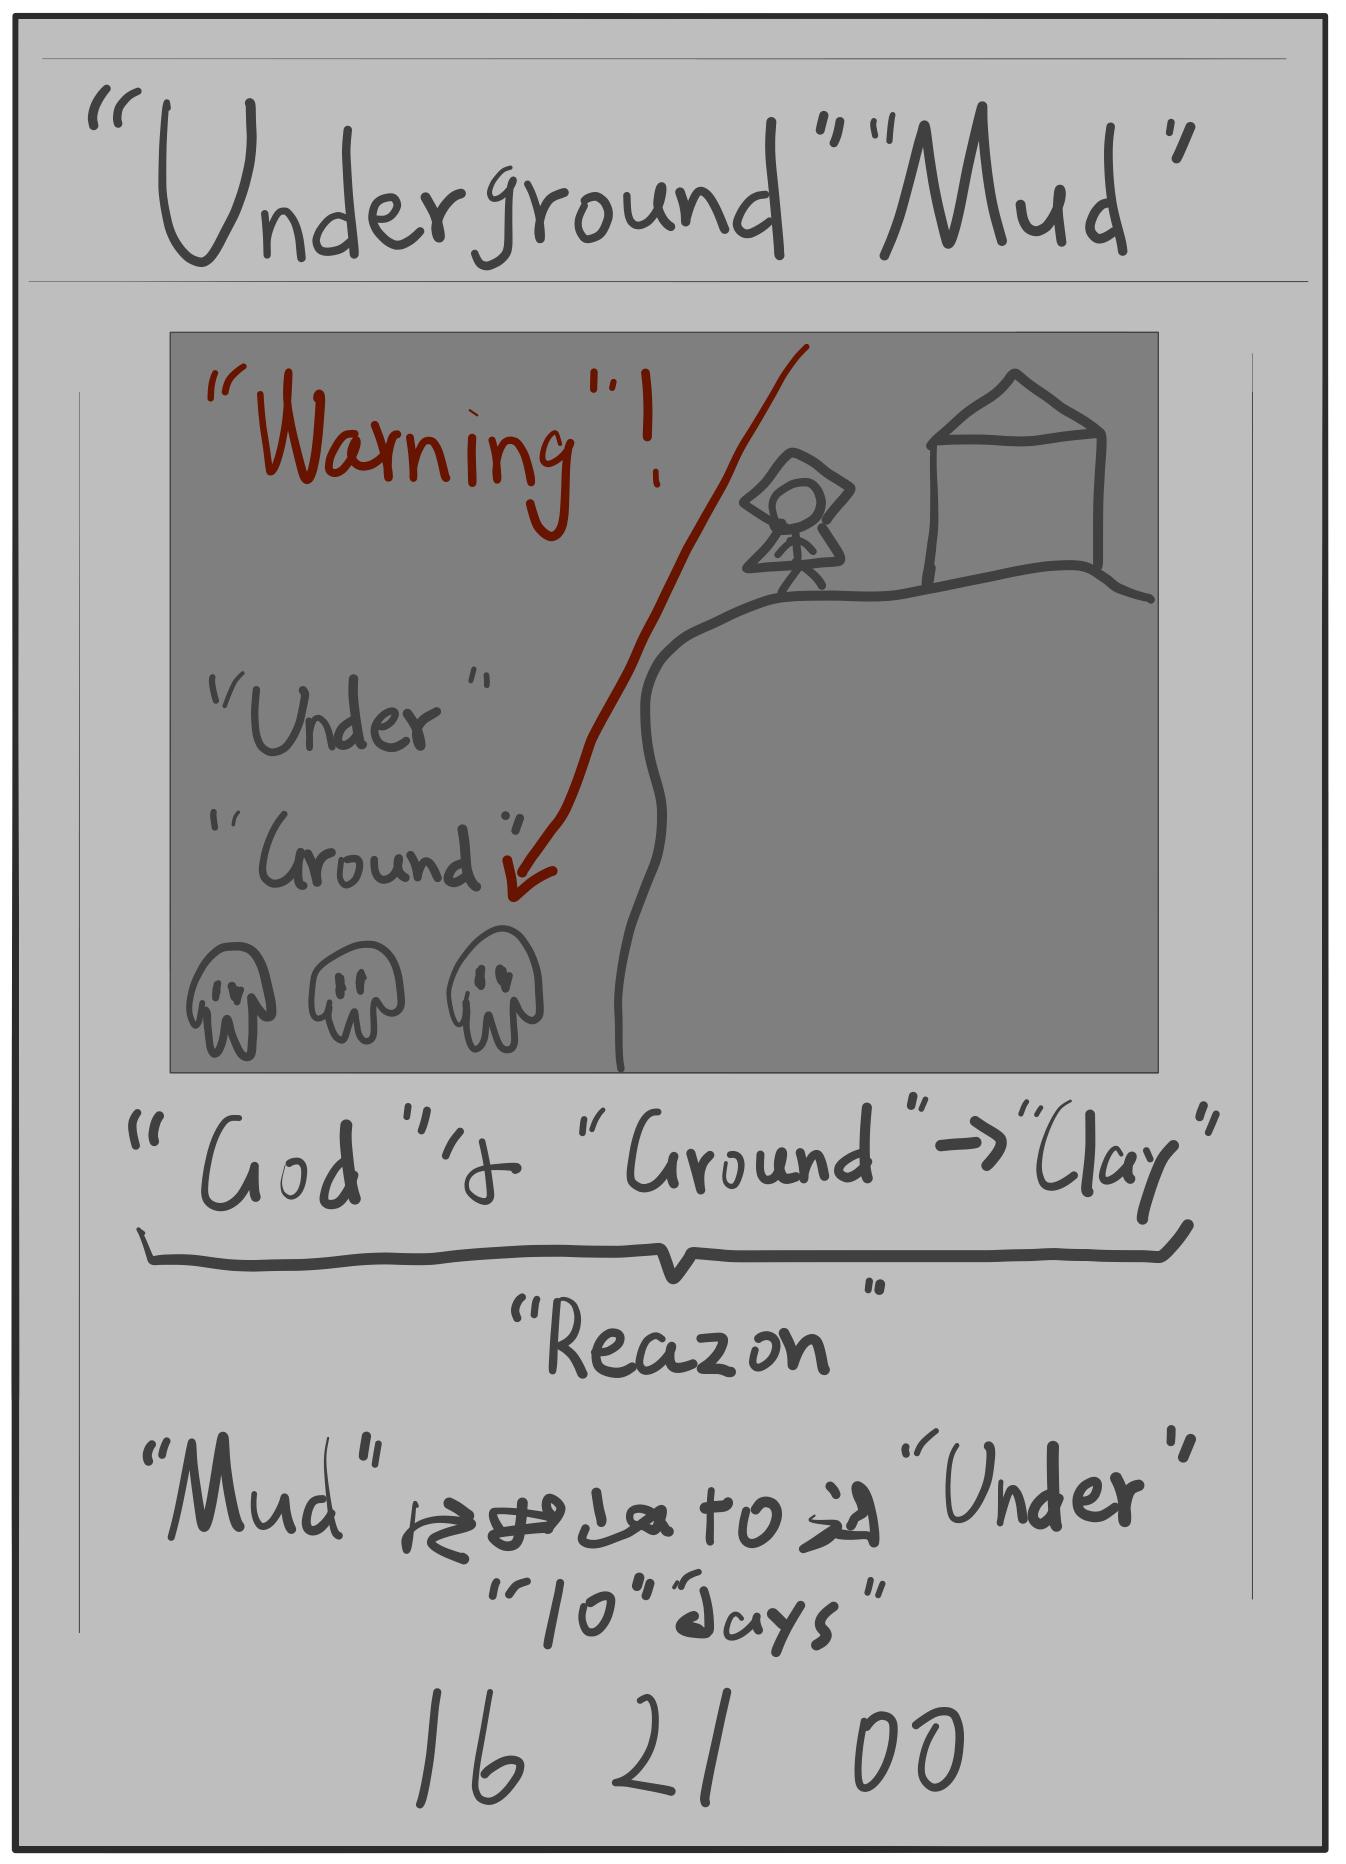 "Underground" "Mud"
"Warning"!
"Under"
"Ground"
"God" & "Ground" → "Clay"
"Reazon"
"Mud" to "Under"
"10" "days"
16 21 00